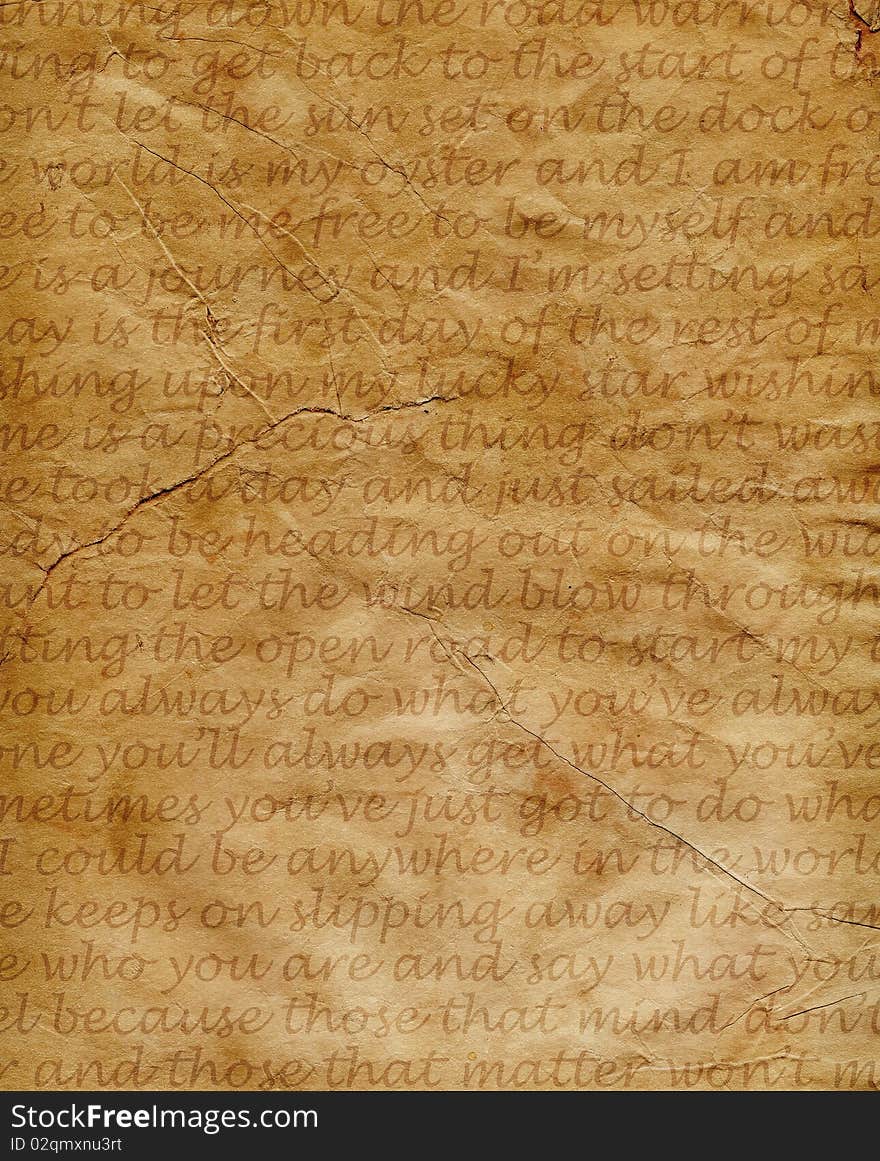 down the road warrior
to get back to the start of
let the sun set on the dock
world is my oyster and I am
to be me free to be myself and
is a journey and I'm setting
is the first day of the rest of
upon my lucky star
is a precious thing don't
took a day and just sailed
to be heading out on the
to let the wind blow through
the open road to start my
you always do what you've
you'll always get what you've
you've just got to do
I could be anywhere in the
keeps on slipping away like
who you are and say what you
because those that mind don't
and those that matter won't
StockFreeImages.com
ID 02qmxnu3rt